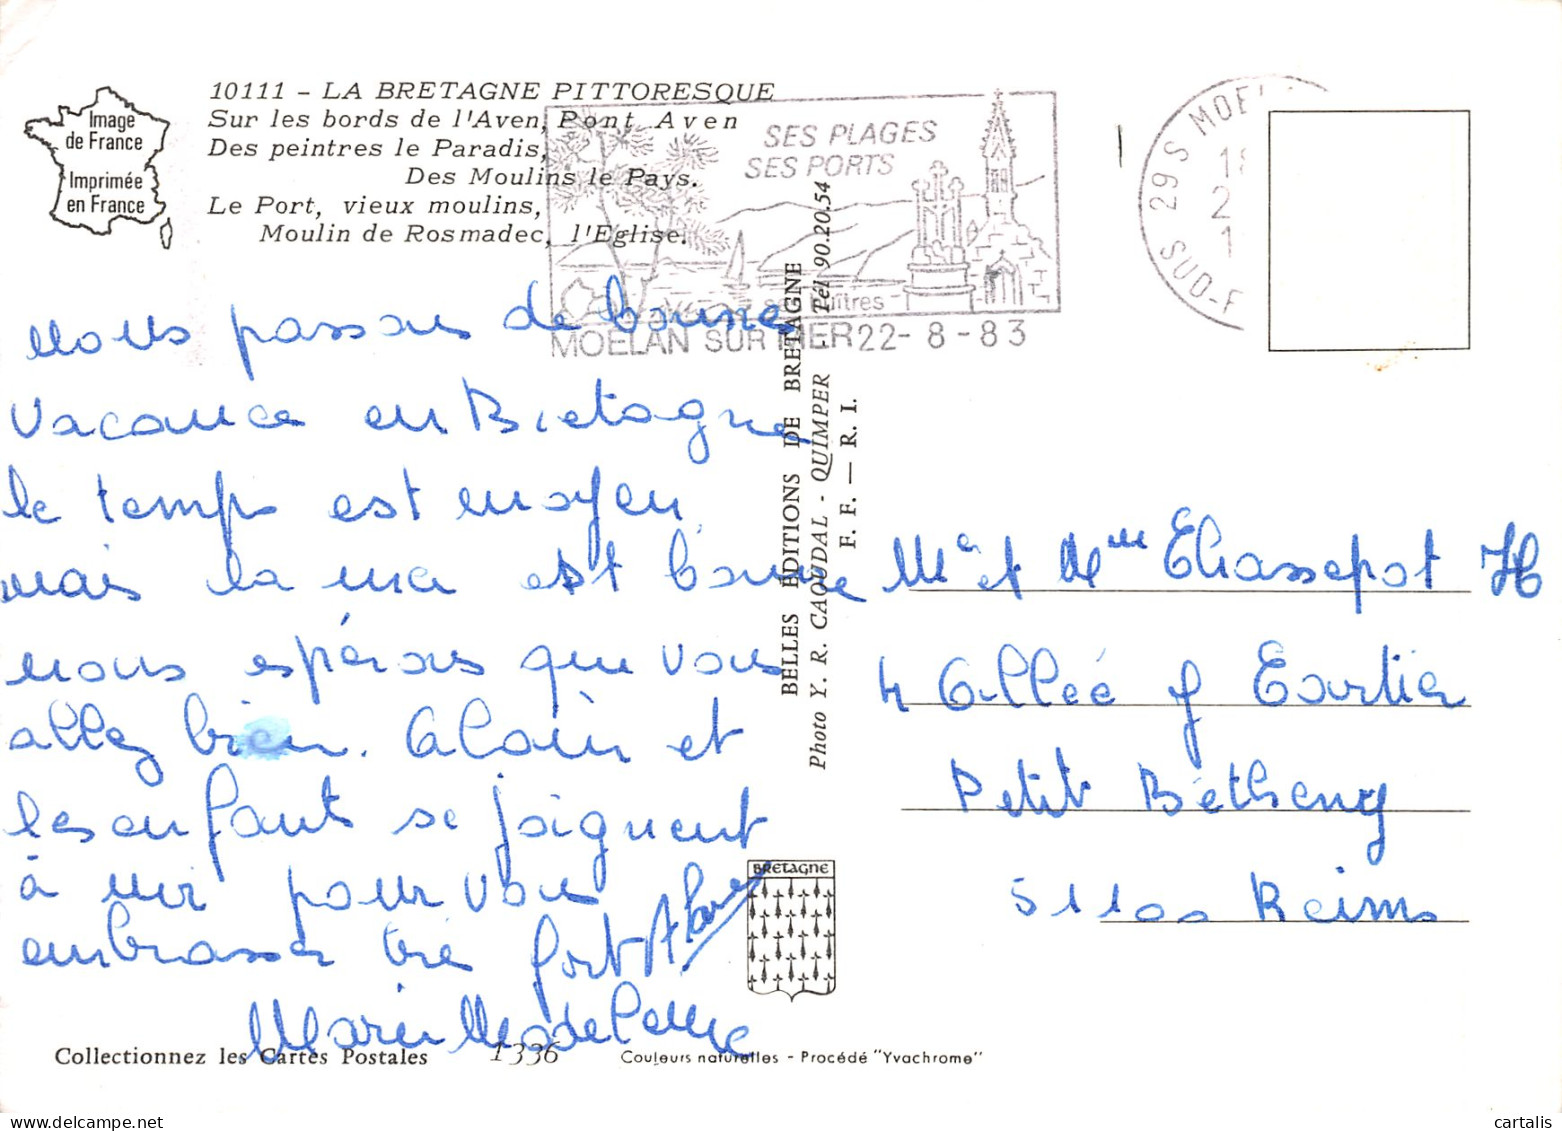 Image
de France
Imprimée
en France
10111 - LA BRETAGNE PITTORESQUE
Sur les bords de l'Aven, Pont Aven
Des peintres le Paradis,
Des Moulins le Pays.
Le Port, vieux moulins,
Moulin de Rosmadec, l'Eglise.
SES PLAGES
SES PORTS
MOELAN SUR MER 22-8-83
29 S MOEL
18
2
1
SUD-F
nous passons de bonnes
vacance en Bretagne
le temps est moyen,
mais la mer est bonne
nous espérons que vous
allez bien. Alain et
les enfants se joignent
à moi pour vous
embrasser très fort
Marie Madeleine
BELLES EDITIONS DE BRETAGNE
Photo Y. R. CAOUDAL - QUIMPER - Tél 90.20.54
F. F. — R. I.
Mr et Mme Chassepot H
4 Allée J Cartier
Petit Bétheny
51100 Reims
BRETAGNE
Collectionnez les Cartes Postales
1336
Couleurs naturelles - Procédé "Yvachrome"
cartalis